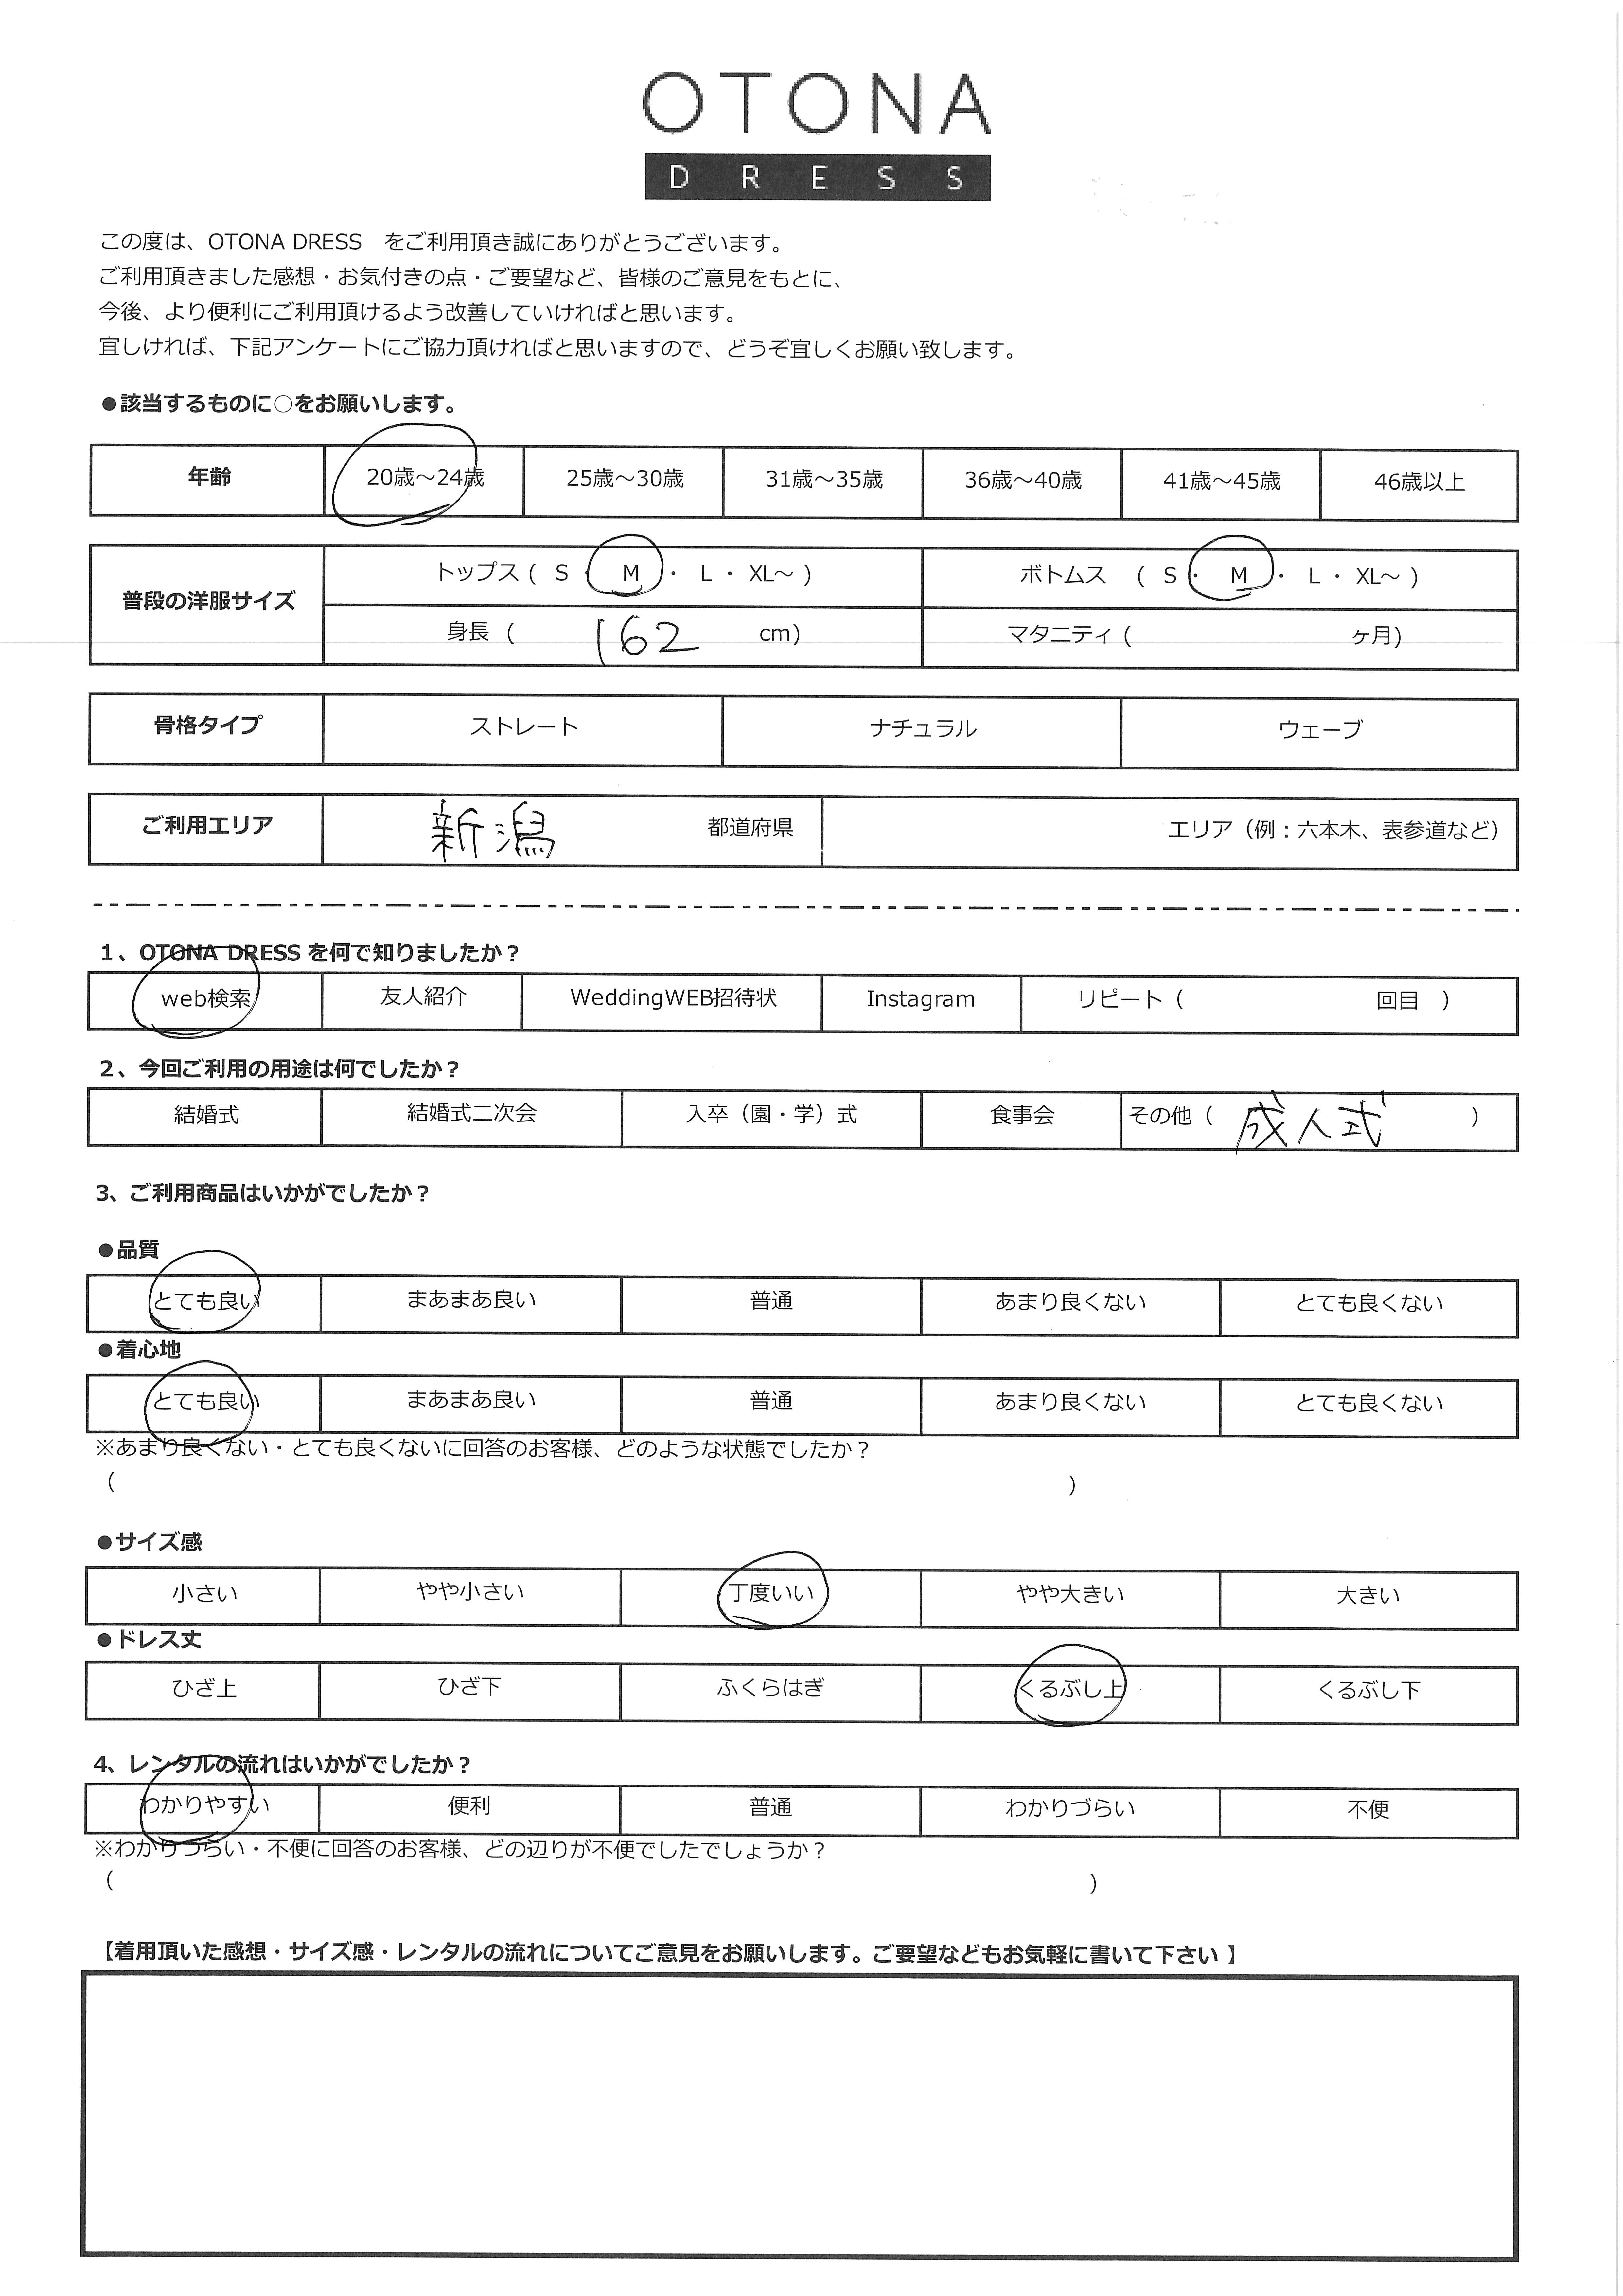 OTONA
DRESS
この度は、OTONA DRESS　をご利用頂き誠にありがとうございます。
ご利用頂きました感想・お気付きの点・ご要望など、皆様のご意見をもとに、
今後、より便利にご利用頂けるよう改善していければと思います。
宜しければ、下記アンケートにご協力頂ければと思いますので、どうぞ宜しくお願い致します。
●該当するものに○をお願いします。
年齢 20歳～24歳 25歳～30歳 31歳～35歳 36歳～40歳 41歳～45歳 46歳以上
普段の洋服サイズ トップス ( S ・ M ・ L ・ XL～ ) ボトムス ( S ・ M ・ L ・ XL～ )
身長 ( 162 cm) マタニティ ( ヶ月)
骨格タイプ ストレート ナチュラル ウェーブ
ご利用エリア 新潟 都道府県 エリア（例：六本木、表参道など）
1、OTONA DRESS を何で知りましたか？
web検索 友人紹介 WeddingWEB招待状 Instagram リピート（ 回目 ）
2、今回ご利用の用途は何でしたか？
結婚式 結婚式二次会 入卒（園・学）式 食事会 その他（ 成人式 ）
3、ご利用商品はいかがでしたか？
●品質
とても良い まあまあ良い 普通 あまり良くない とても良くない
●着心地
とても良い まあまあ良い 普通 あまり良くない とても良くない
※あまり良くない・とても良くないに回答のお客様、どのような状態でしたか？
（ ）
●サイズ感
小さい やや小さい 丁度いい やや大きい 大きい
●ドレス丈
ひざ上 ひざ下 ふくらはぎ くるぶし上 くるぶし下
4、レンタルの流れはいかがでしたか？
わかりやすい 便利 普通 わかりづらい 不便
※わかりづらい・不便に回答のお客様、どの辺りが不便でしたでしょうか？
（ ）
【着用頂いた感想・サイズ感・レンタルの流れについてご意見をお願いします。ご要望などもお気軽に書いて下さい 】